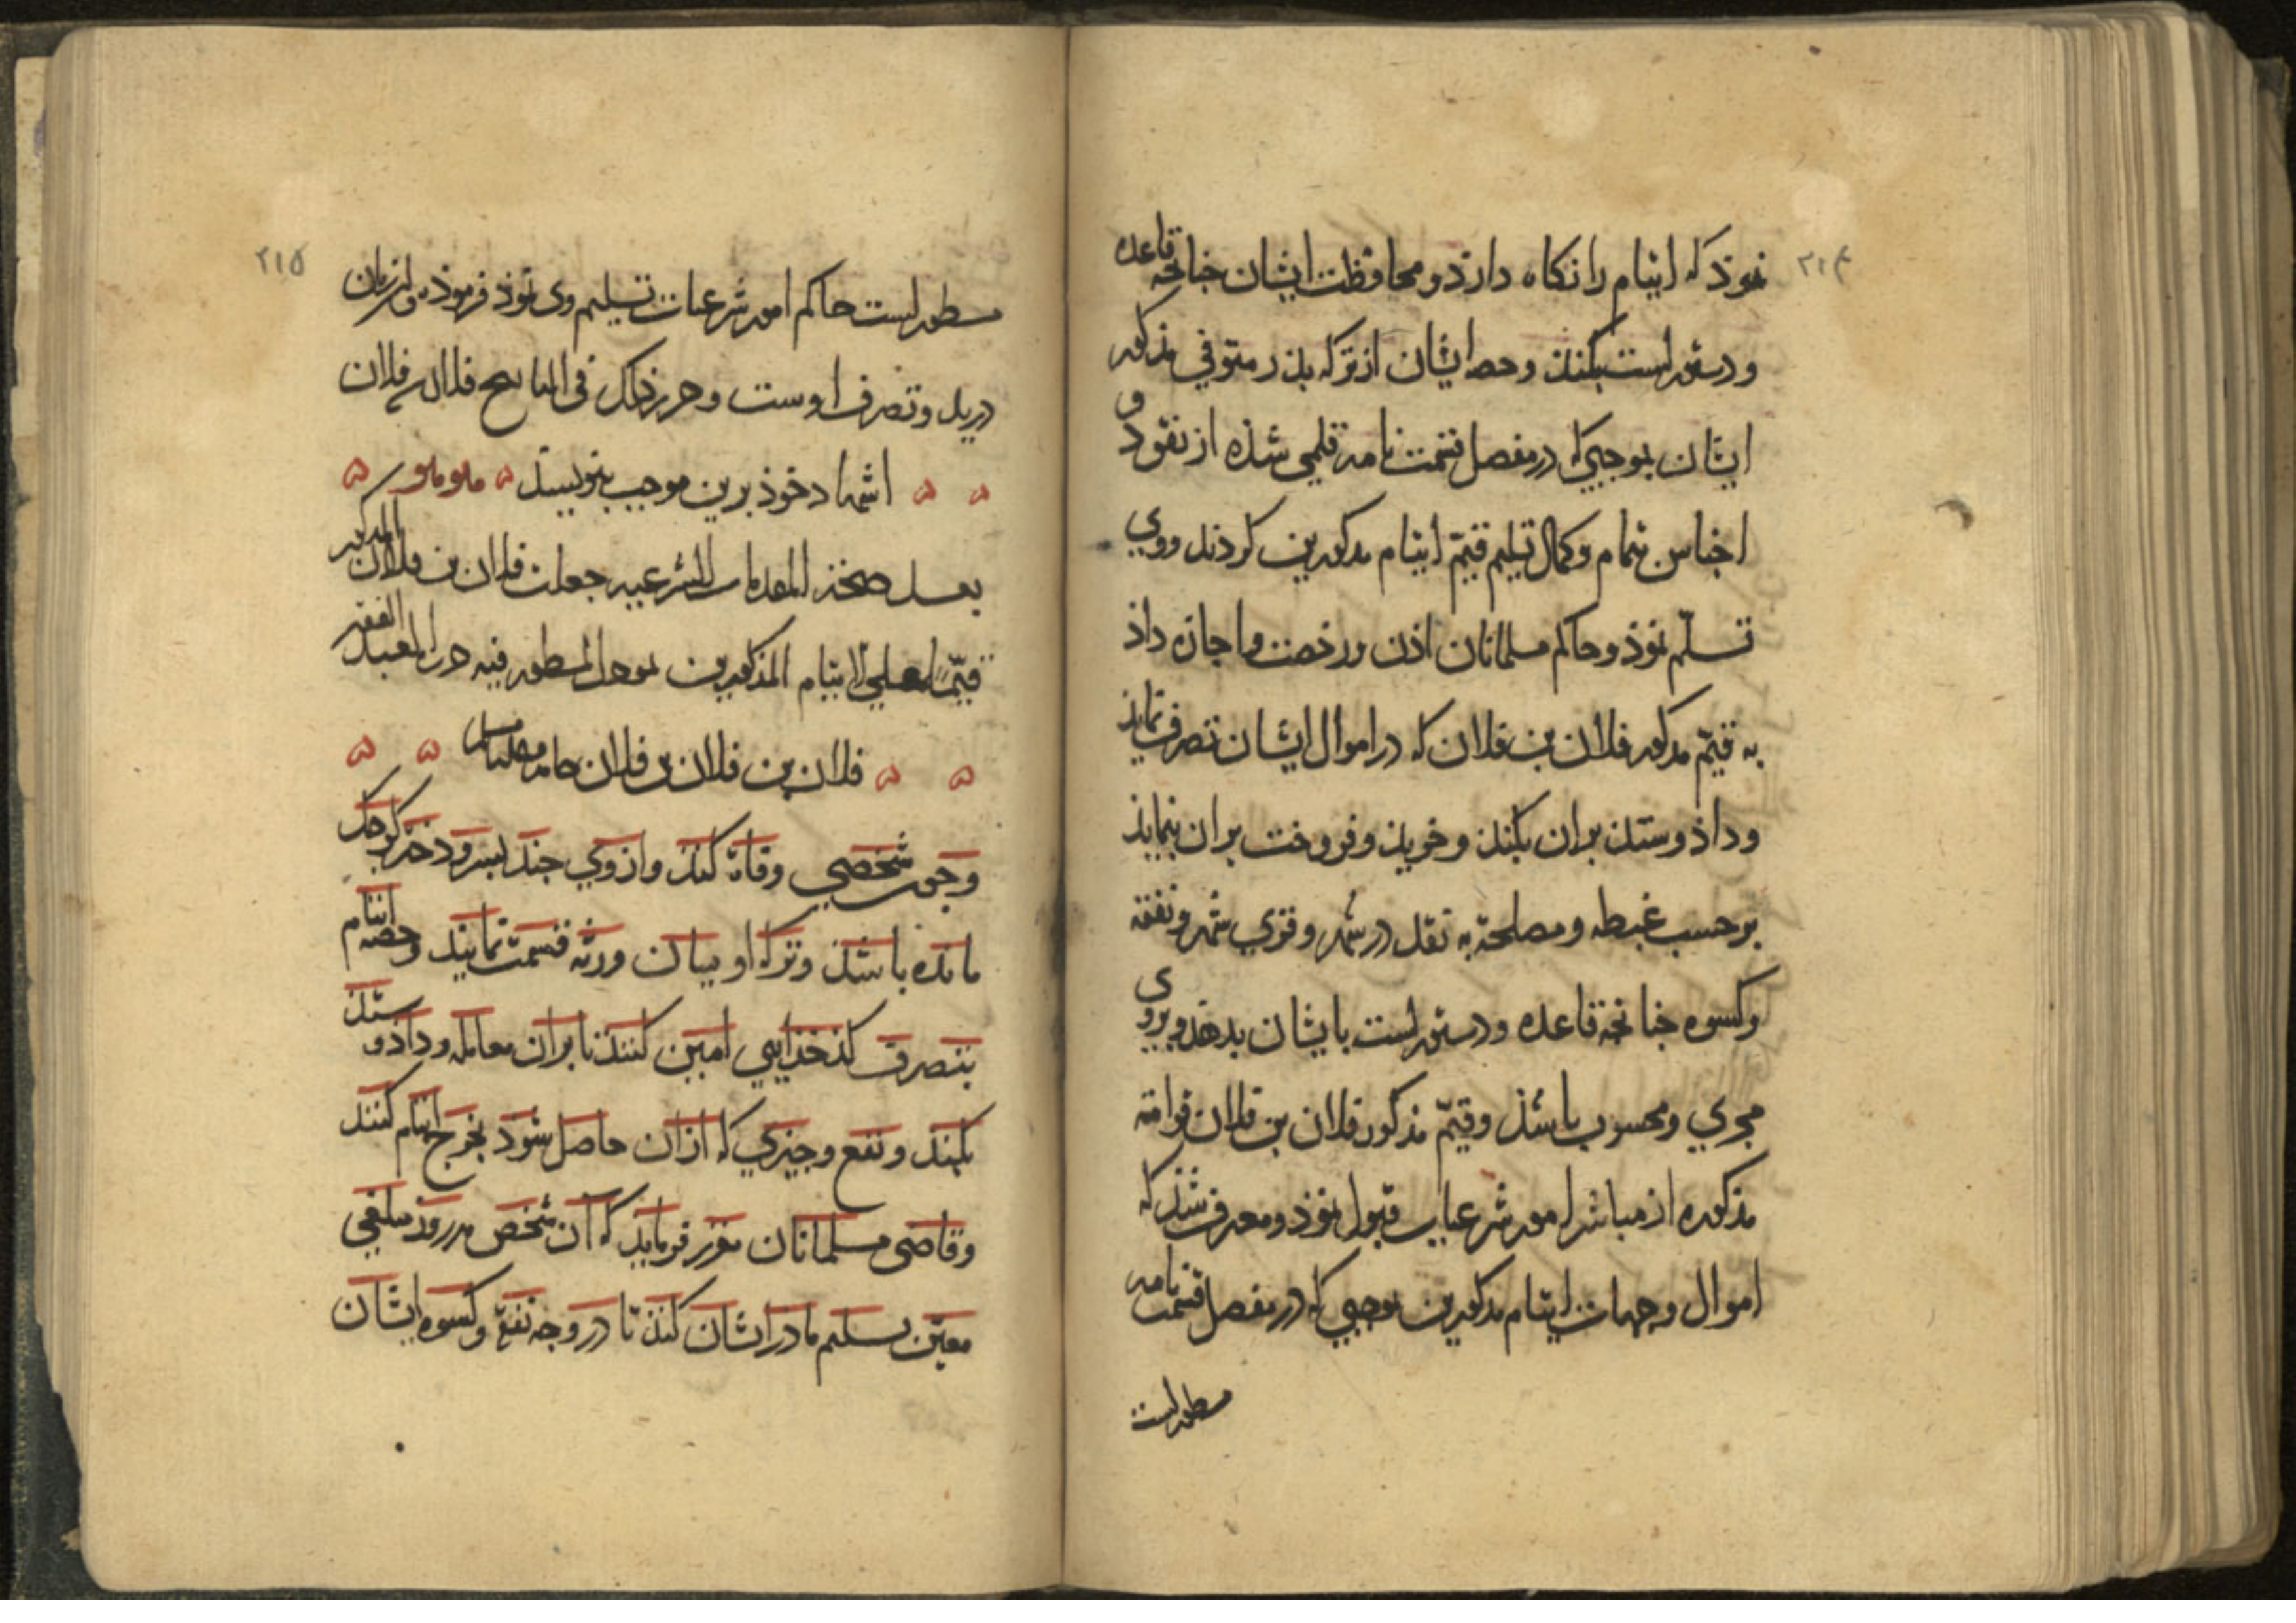 ٢١٤
نموذ که ایتام را نکاه دارذ و محافظت ایشان جنانجه قاعده
و دستورست بکنند و حصه ایشان از ترکه بذر متوفی مذکور
ایشان بموجبی که در مفصل قسمت نامه قلمی شذه از نقود و
اجناس بتمام و کمال تسلیم قیّم ایتام مذکورین کردند و وی
تسلّم نموذ و حاکم مسلمانان اذن و رخصت و اجازه داذ
به قیّم مذکور فلان بن فلان که در اموال ایشان تصرف نمایذ
و داذ و ستد بران بکند و خرید و فروخت بران بنمایذ
بر حسب غبطه و مصلحة به نقل در شهر و قری شهر و نفقه
و کسوه جنانجه قاعده و دستورست بایشان بدهد و بر وی
مجری و محسوب باشذ و قیّم مذکور فلان بن فلان قوامة
مذکوره از مباشر امور شرعیات قبول نموذ و معترف شذ که
اموال و جهات ایتام مذکورین بموجبی که در مفصل قسمت نامه
مسطورست
٢١٥
مسطورست حاکم امور شرعیات تسلیم وی نموذ فرموذه و این زمان
در ید و تصرف اوست و حرر ذلک فی فلان فلان
اشهاد خوذ برین موجب بنویسند
بعد صحة المقدمات الشرعیه جعلت فلان بن فلان المذکور
قیّماً علی الایتام المذکورین المسطور فیه حرره العبد الفقیر
فلان بن فلان بن فلان
و جون شخصی وفاة کند و از وی جند بسر و دختر کوجک
مانده باشند و ترکه او میان ورثه قسمت نمایند و حصه ایتام
بتصرف کذخذایی امین کنند تا بران معامله و داذ و ستد
بکند و نفع و جیزی که ازان حاصل شوذ بخرج ایتام کنند
و قاضی مسلمانان مقرر فرماید که آن شخص هر روز مبلغی
معیّن تسلیم مادر ایشان کند تا در وجه نفقه و کسوه ایشان